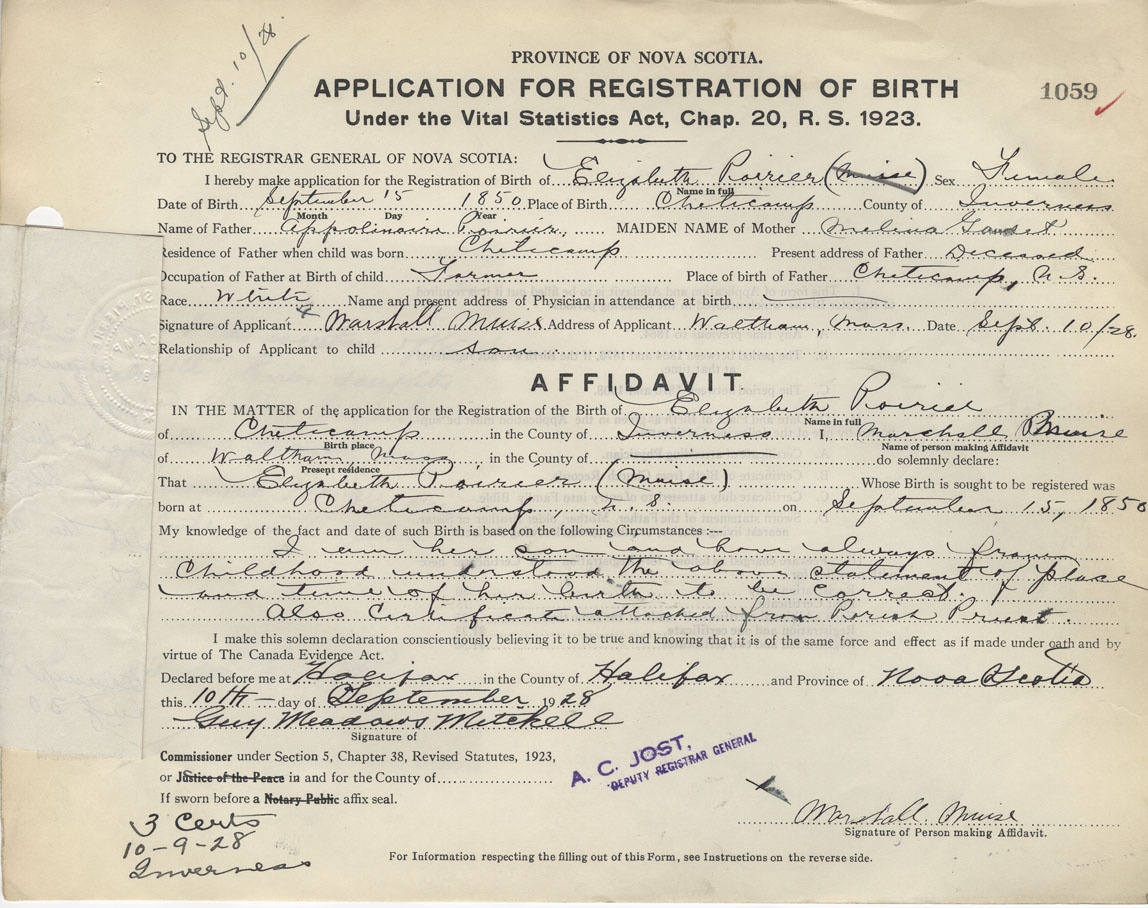 Sept. 10/28
PROVINCE OF NOVA SCOTIA.
APPLICATION FOR REGISTRATION OF BIRTH
1059
Under the Vital Statistics Act, Chap. 20, R. S. 1923.
TO THE REGISTRAR GENERAL OF NOVA SCOTIA:
I hereby make application for the Registration of Birth of Elizabeth Poirier (Muise) Sex Female
Name in full
Date of Birth September 15 1850 Place of Birth Cheticamp County of Inverness
Month Day Year
Name of Father Appolinaire Poirier, MAIDEN NAME of Mother Melina Gaudet
Residence of Father when child was born Cheticamp Present address of Father Deceased
Occupation of Father at Birth of child Farmer Place of birth of Father Cheticamp, N. S.
Race White Name and present address of Physician in attendance at birth
Signature of Applicant Marshall Muise Address of Applicant Waltham, Mass. Date Sept. 10/28.
Relationship of Applicant to child son.
AFFIDAVIT
IN THE MATTER of the application for the Registration of the Birth of Elizabeth Poirier
Name in full
of Cheticamp in the County of Inverness I, Marshall Muise
Birth place Name of person making Affidavit
of Waltham, Mass in the County of do solemnly declare:
Present residence
That Elizabeth Poirier (Muise) Whose Birth is sought to be registered was
born at Cheticamp, N. S. on September 15, 1850
My knowledge of the fact and date of such Birth is based on the following Circumstances :---
I am her son and have always from
childhood understood the above statement of place
and time of her birth to be correct.
Also Certificate attached from Parish Priest.
I make this solemn declaration conscientiously believing it to be true and knowing that it is of the same force and effect as if made under oath and by
virtue of The Canada Evidence Act.
Declared before me at Halifax in the County of Halifax and Province of Nova Scotia
this 10th day of September 1928
Guy Meadows Mitchell
Signature of
Commissioner under Section 5, Chapter 38, Revised Statutes, 1923,
or Justice of the Peace in and for the County of
If sworn before a Notary Public affix seal.
A. C. JOST,
DEPUTY REGISTRAR GENERAL
Marshall Muise
Signature of Person making Affidavit.
3 Certs
10-9-28
Inverness
For Information respecting the filling out of this Form, see Instructions on the reverse side.